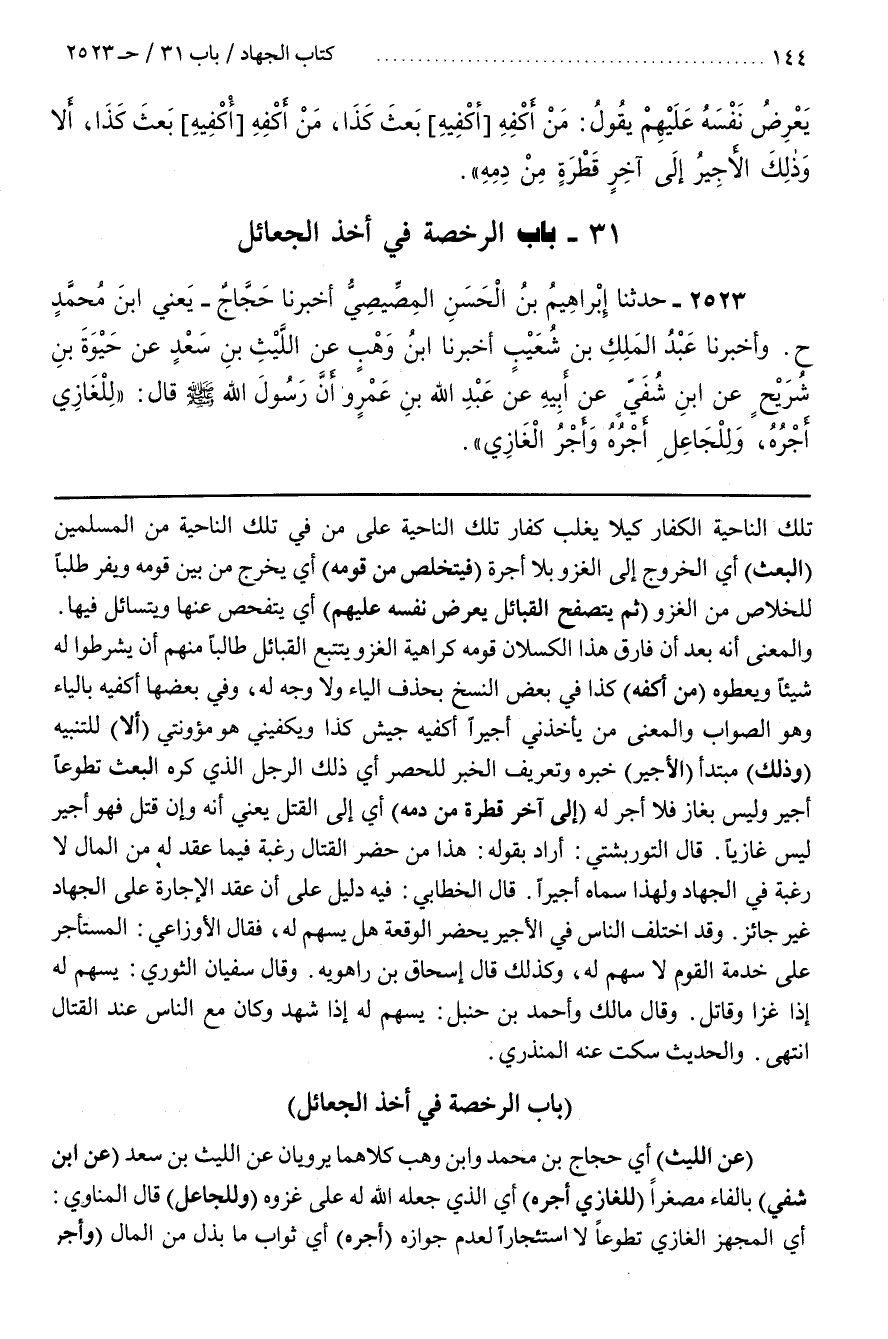 ١٤٤ ........................................ كتاب الجهاد / باب ٣١ / حـ ٢٥٢٣
يَعْرِضُ نَفْسَهُ عَلَيْهِمْ يقُولُ: مَنْ أَكْفِهِ [أكْفِيهِ] بَعثَ كَذَا، مَنْ أَكْفِهِ [أْكْفِيهِ] بَعثَ كَذَا، أَلا
وَذٰلِكَ الأَجِيرُ إلَى آخِرِ قَطْرَةٍ مِنْ دِمِهِ».
٣١ ـ باب الرخصة في أخذ الجعائل
٢٥٢٣ ـ حدثنا إبْراهِيمُ بنُ الْحَسَنِ المِصِّيصِيُّ أخبرنا حَجَّاجٌ ـ يَعني ابنَ مُحمَّدٍ
ح. وأخبرنا عَبْدُ المَلِكِ بن شُعَيْبٍ أخبرنا ابنُ وَهْبٍ عن اللَّيْثِ بنِ سَعْدٍ عن حَيْوَةَ بنِ
شُرَيْحٍ عن ابنِ شُفَيّ عن أَبِيهِ عن عَبْدِ الله بنِ عَمْرٍو أنَّ رَسُولَ الله ﷺ قال: «لِلْغَازِي
أَجْرُهُ، وَلِلْجَاعِلِ أَجْرُهُ وَأَجْرُ الْغَازِي».
تلك الناحية الكفار كيلا يغلب كفار تلك الناحية على من في تلك الناحية من المسلمين
(البعث) أي الخروج إلى الغزو بلا أجرة (فيتخلص من قومه) أي يخرج من بين قومه ويفر طلباً
للخلاص من الغزو (ثم يتصفح القبائل يعرض نفسه عليهم) أي يتفحص عنها ويتسائل فيها.
والمعنى أنه بعد أن فارق هذا الكسلان قومه كراهية الغزو يتتبع القبائل طالباً منهم أن يشرطوا له
شيئاً ويعطوه (من أكفه) كذا في بعض النسخ بحذف الياء ولا وجه له، وفي بعضها أكفيه بالياء
وهو الصواب والمعنى من يأخذني أجيراً أكفيه جيش كذا ويكفيني هو مؤونتي (ألا) للتنبيه
(وذلك) مبتدأ (الأجير) خبره وتعريف الخبر للحصر أي ذلك الرجل الذي كره البعث تطوعاً
أجير وليس بغاز فلا أجر له (إلى آخر قطرة من دمه) أي إلى القتل يعني أنه وإن قتل فهو أجير
ليس غازياً. قال التوربشتي: أراد بقوله: هذا من حضر القتال رغبة فيما عقد له من المال لا
رغبة في الجهاد ولهذا سماه أجيراً. قال الخطابي: فيه دليل على أن عقد الإجارة على الجهاد
غير جائز. وقد اختلف الناس في الأجير يحضر الوقعة هل يسهم له، فقال الأوزاعي: المستأجر
على خدمة القوم لا سهم له، وكذلك قال إسحاق بن راهويه. وقال سفيان الثوري: يسهم له
إذا غزا وقاتل. وقال مالك وأحمد بن حنبل: يسهم له إذا شهد وكان مع الناس عند القتال
انتهى. والحديث سكت عنه المنذري.
(باب الرخصة في أخذ الجعائل)
(عن الليث) أي حجاج بن محمد وابن وهب كلاهما يرويان عن الليث بن سعد (عن ابن
شفي) بالفاء مصغراً (للغازي أجره) أي الذي جعله الله له على غزوه (وللجاعل) قال المناوي:
أي المجهز الغازي تطوعاً لا استئجاراً لعدم جوازه (أجره) أي ثواب ما بذل من المال (وأجر